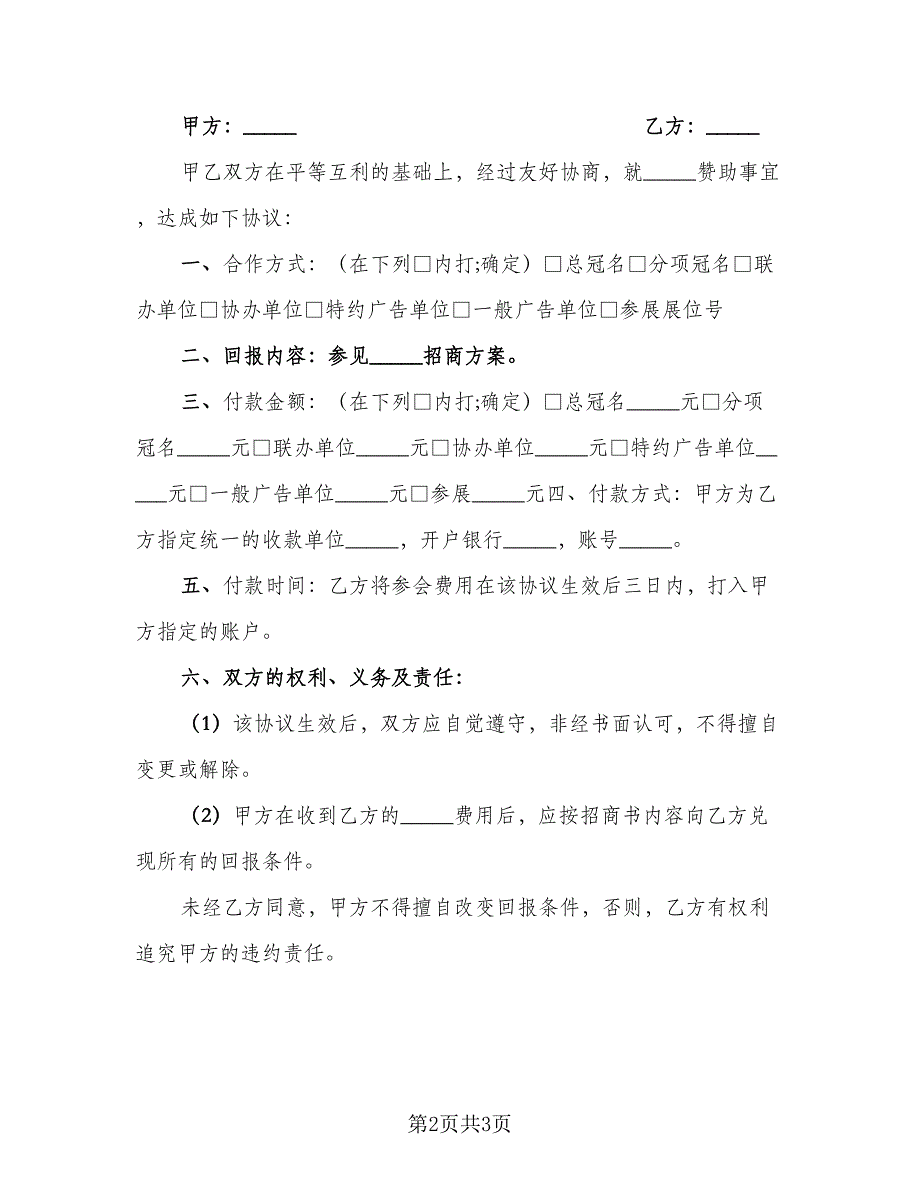 甲方：_____ 乙方：_____
甲乙双方在平等互利的基础上，经过友好协商，就_____赞助事宜
，达成如下协议：
一、合作方式：（在下列□内打;确定）□总冠名□分项冠名□联
办单位□协办单位□特约广告单位□一般广告单位□参展展位号
二、回报内容：参见_____招商方案。
三、付款金额：（在下列□内打;确定）□总冠名_____元□分项
冠名_____元□联办单位_____元□协办单位_____元□特约广告单位__
___元□一般广告单位_____元□参展_____元四、付款方式：甲方为乙
方指定统一的收款单位_____，开户银行_____，账号_____。
五、付款时间：乙方将参会费用在该协议生效后三日内，打入甲
方指定的账户。
六、双方的权利、义务及责任：
（1）该协议生效后，双方应自觉遵守，非经书面认可，不得擅自
变更或解除。
（2）甲方在收到乙方的_____费用后，应按招商书内容向乙方兑
现所有的回报条件。
未经乙方同意，甲方不得擅自改变回报条件，否则，乙方有权利
追究甲方的违约责任。
第2页共3页